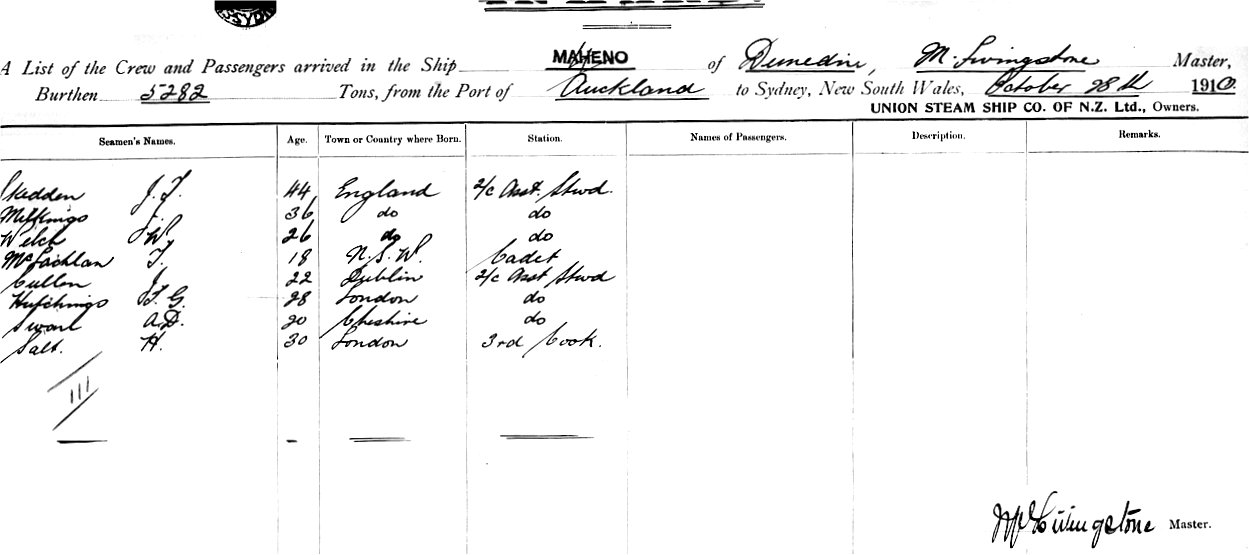 A List of the Crew and Passengers arrived in the Ship MAHENO of Dunedin, M. Livingstone Master,
Burthen 5282 Tons, from the Port of Auckland to Sydney, New South Wales, October 28th 1910.
UNION STEAM SHIP CO. OF N.Z. Ltd., Owners.
Seamen's Names. Age. Town or Country where Born. Station. Names of Passengers. Description. Remarks.
Skedden J. F. 44 England 2/c Asst. Stwd.
36 do do
Welch W. 26 do do
McLachlan T. 18 N.S.W. Cadet
Cullen J. 22 Dublin 2/c Asst Stwd
Hutchings F. G. 28 London do
Swan A.D. 20 Cheshire do
Salt. H. 30 London 3rd Cook.
111
M Livingstone Master.